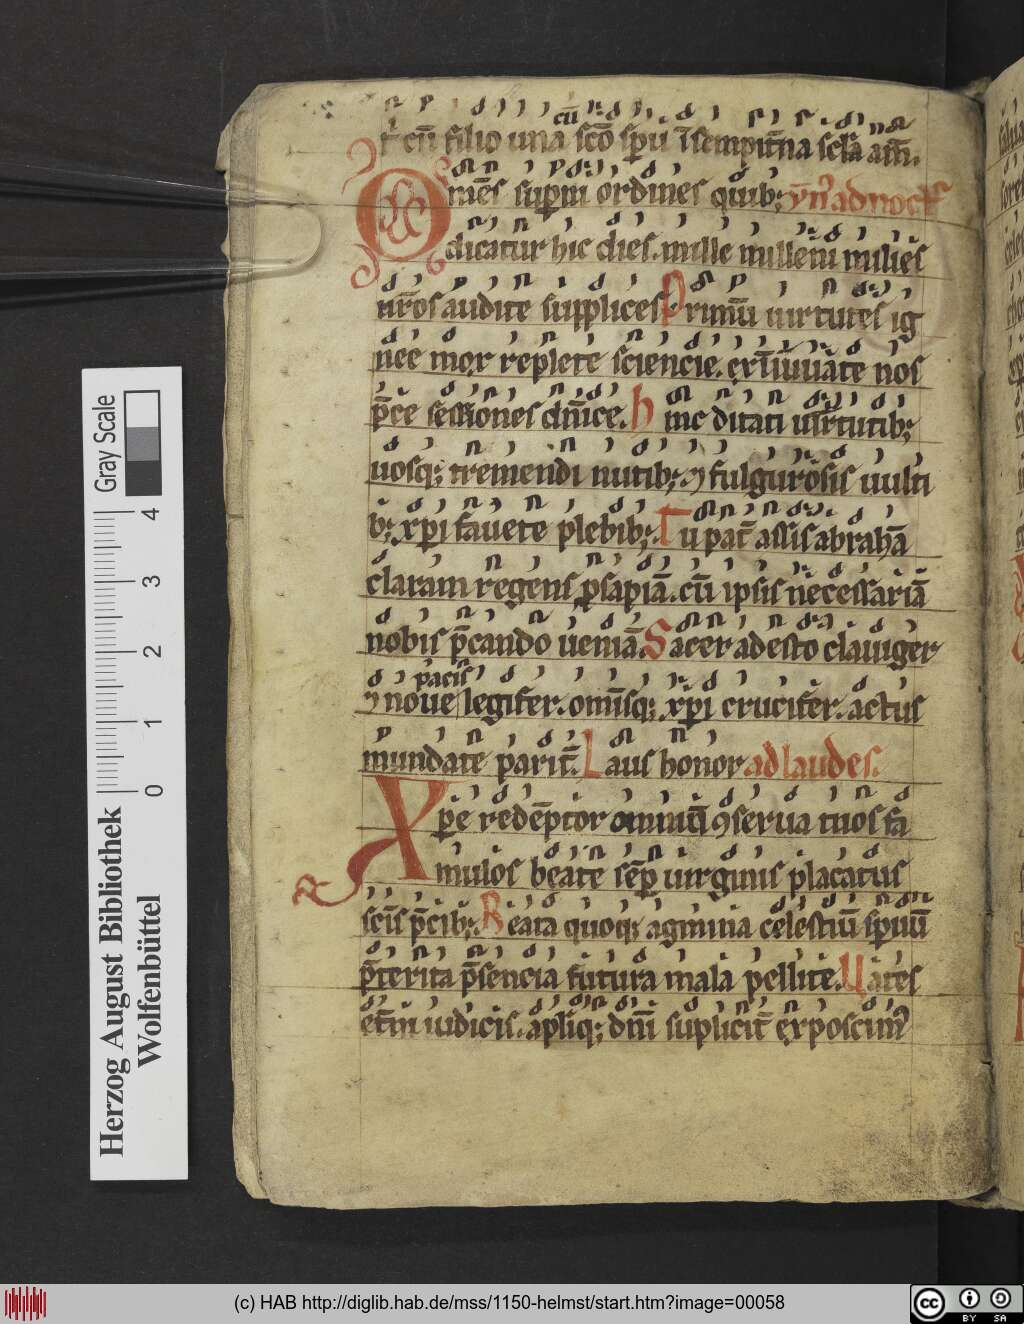 cū
t̄ cū filio una scō sp̄u ī sempit̄na sc̄la am̄.
Omēs sup̄ni ordines quib; ȳn̄ ad noct̄
dicatur hic dies. mille millenū milies
nr̄os audite supplices. Primū uirtutes ig
nee mox replete sciencie. ex īuiuate nos
p̄ce sessiones dn̄ice. Hinc ditati uirtutib;
uosq; tremendi nutib; ⁊ fulgurosis uulti
b; xp̄i fauete plebib;. Tu pat̄ assis abrahā
claram regens p̄sapiā. cū ipsis necessariā
nobis p̄cando ueniā. Sacer adesto clauiger
pacis
⁊ noue legifer. omīsq; xp̄i crucifer. actus
mundate parit̄. Laus honor ad laudes.
Xp̄e redēptor omniū ꝯserua tuos fa
mulos beate sēp uirginis placatus
sc̄is p̄cib;. Beata quoq; agmina celestiū sp̄uū
p̄terita p̄sencia futura mala pellite. Uates
et̄ni iudicis. ap̄liq; dn̄i suplicit̄ exposcim̄
Gray Scale
4
3
2
1
0
Herzog August Bibliothek
Wolfenbüttel
(c) HAB http://diglib.hab.de/mss/1150-helmst/start.htm?image=00058
cc BY SA